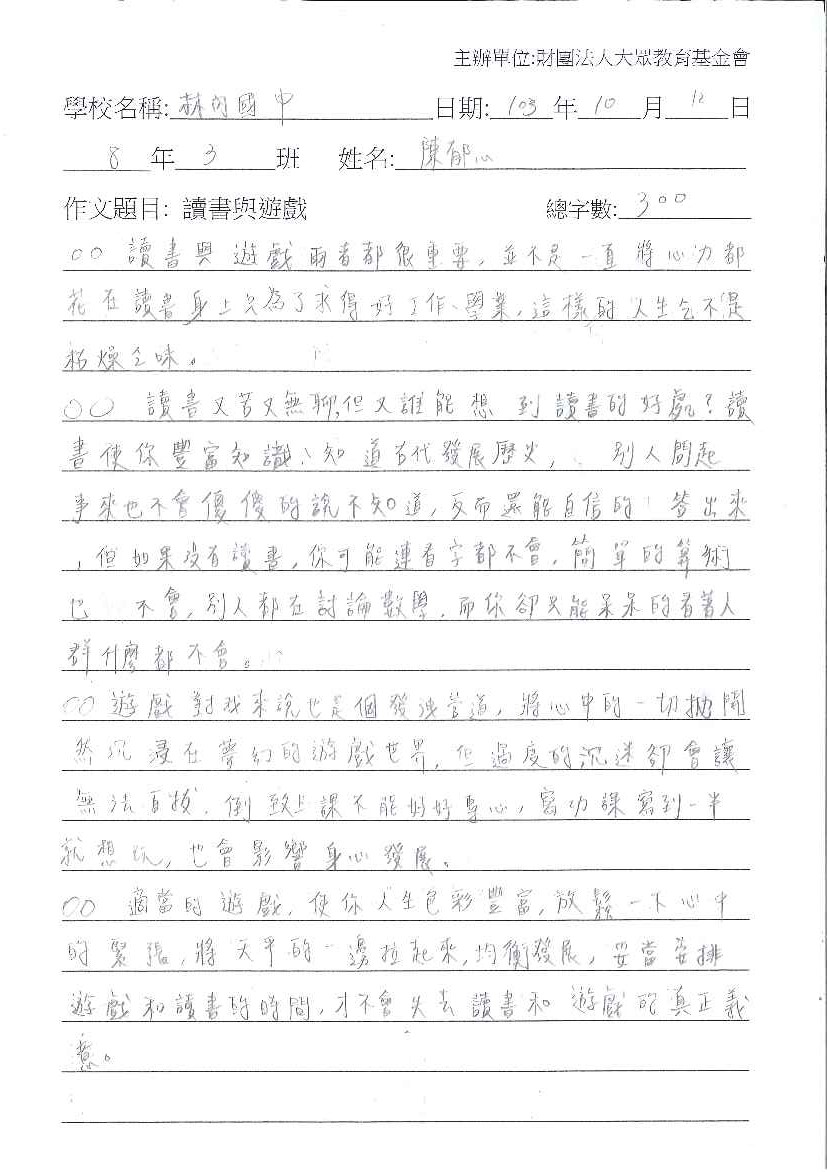 主辦單位:財團法人大眾教育基金會
學校名稱: 國中 日期: 103 年 10 月 12 日
8 年 3 班 姓名: 陳郁心
作文題目: 讀書與遊戲 總字數: 300
○○ 讀書與遊戲兩者都很重要，並不是一直將心力都
花在讀書身上只為了求得好工作、學業，這樣的人生乞不是
枯燥乏味。
○○ 讀書又苦又無聊,但又誰能想到讀書的好處？讀
書使你豐富知識、知道古代發展歷史，別人問起
事來也不會傻傻的說不知道，反而還能自信的答出來
，但如果沒有讀書，你可能連看字都不會，簡單的算術
也不會，別人都在討論數學，而你卻只能呆呆的看著人
群什麼都不會。
○○遊戲對我來說也是個發洩管道，將心中的一切拋開
然沉浸在夢幻的遊戲世界，但過度的沉迷卻會讓
無法自拔，倒致上課不能好好專心，寫功課寫到一半
就想玩，也會影響身心發展。
○○ 適當的遊戲，使你人生色彩豐富，放鬆一下心中
的緊張，將天平的一邊拉起來，均衡發展，妥當安排
遊戲和讀書的時間，才不會失去讀書和遊戲的真正義
意。